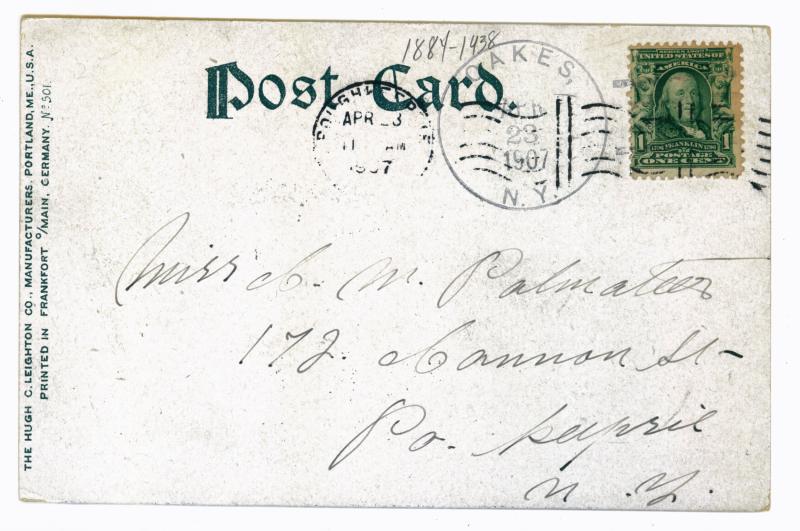 1884-1938
Post Card.
POUGHKEEPSIE
APR 23
11 AM
1907
OAKES,
APR
23
1907
N.Y.
SERIES 1902
UNITED STATES OF
AMERICA
1 1706 FRANKLIN 1790 1
POSTAGE
ONE CENT
Miss C. M. Palmateer
172 Cannon St-
Po. keepsie
N. Y.
THE HUGH C. LEIGHTON CO., MANUFACTURERS, PORTLAND, ME., U.S.A.
PRINTED IN FRANKFORT O/MAIN, GERMANY. Nº 501.